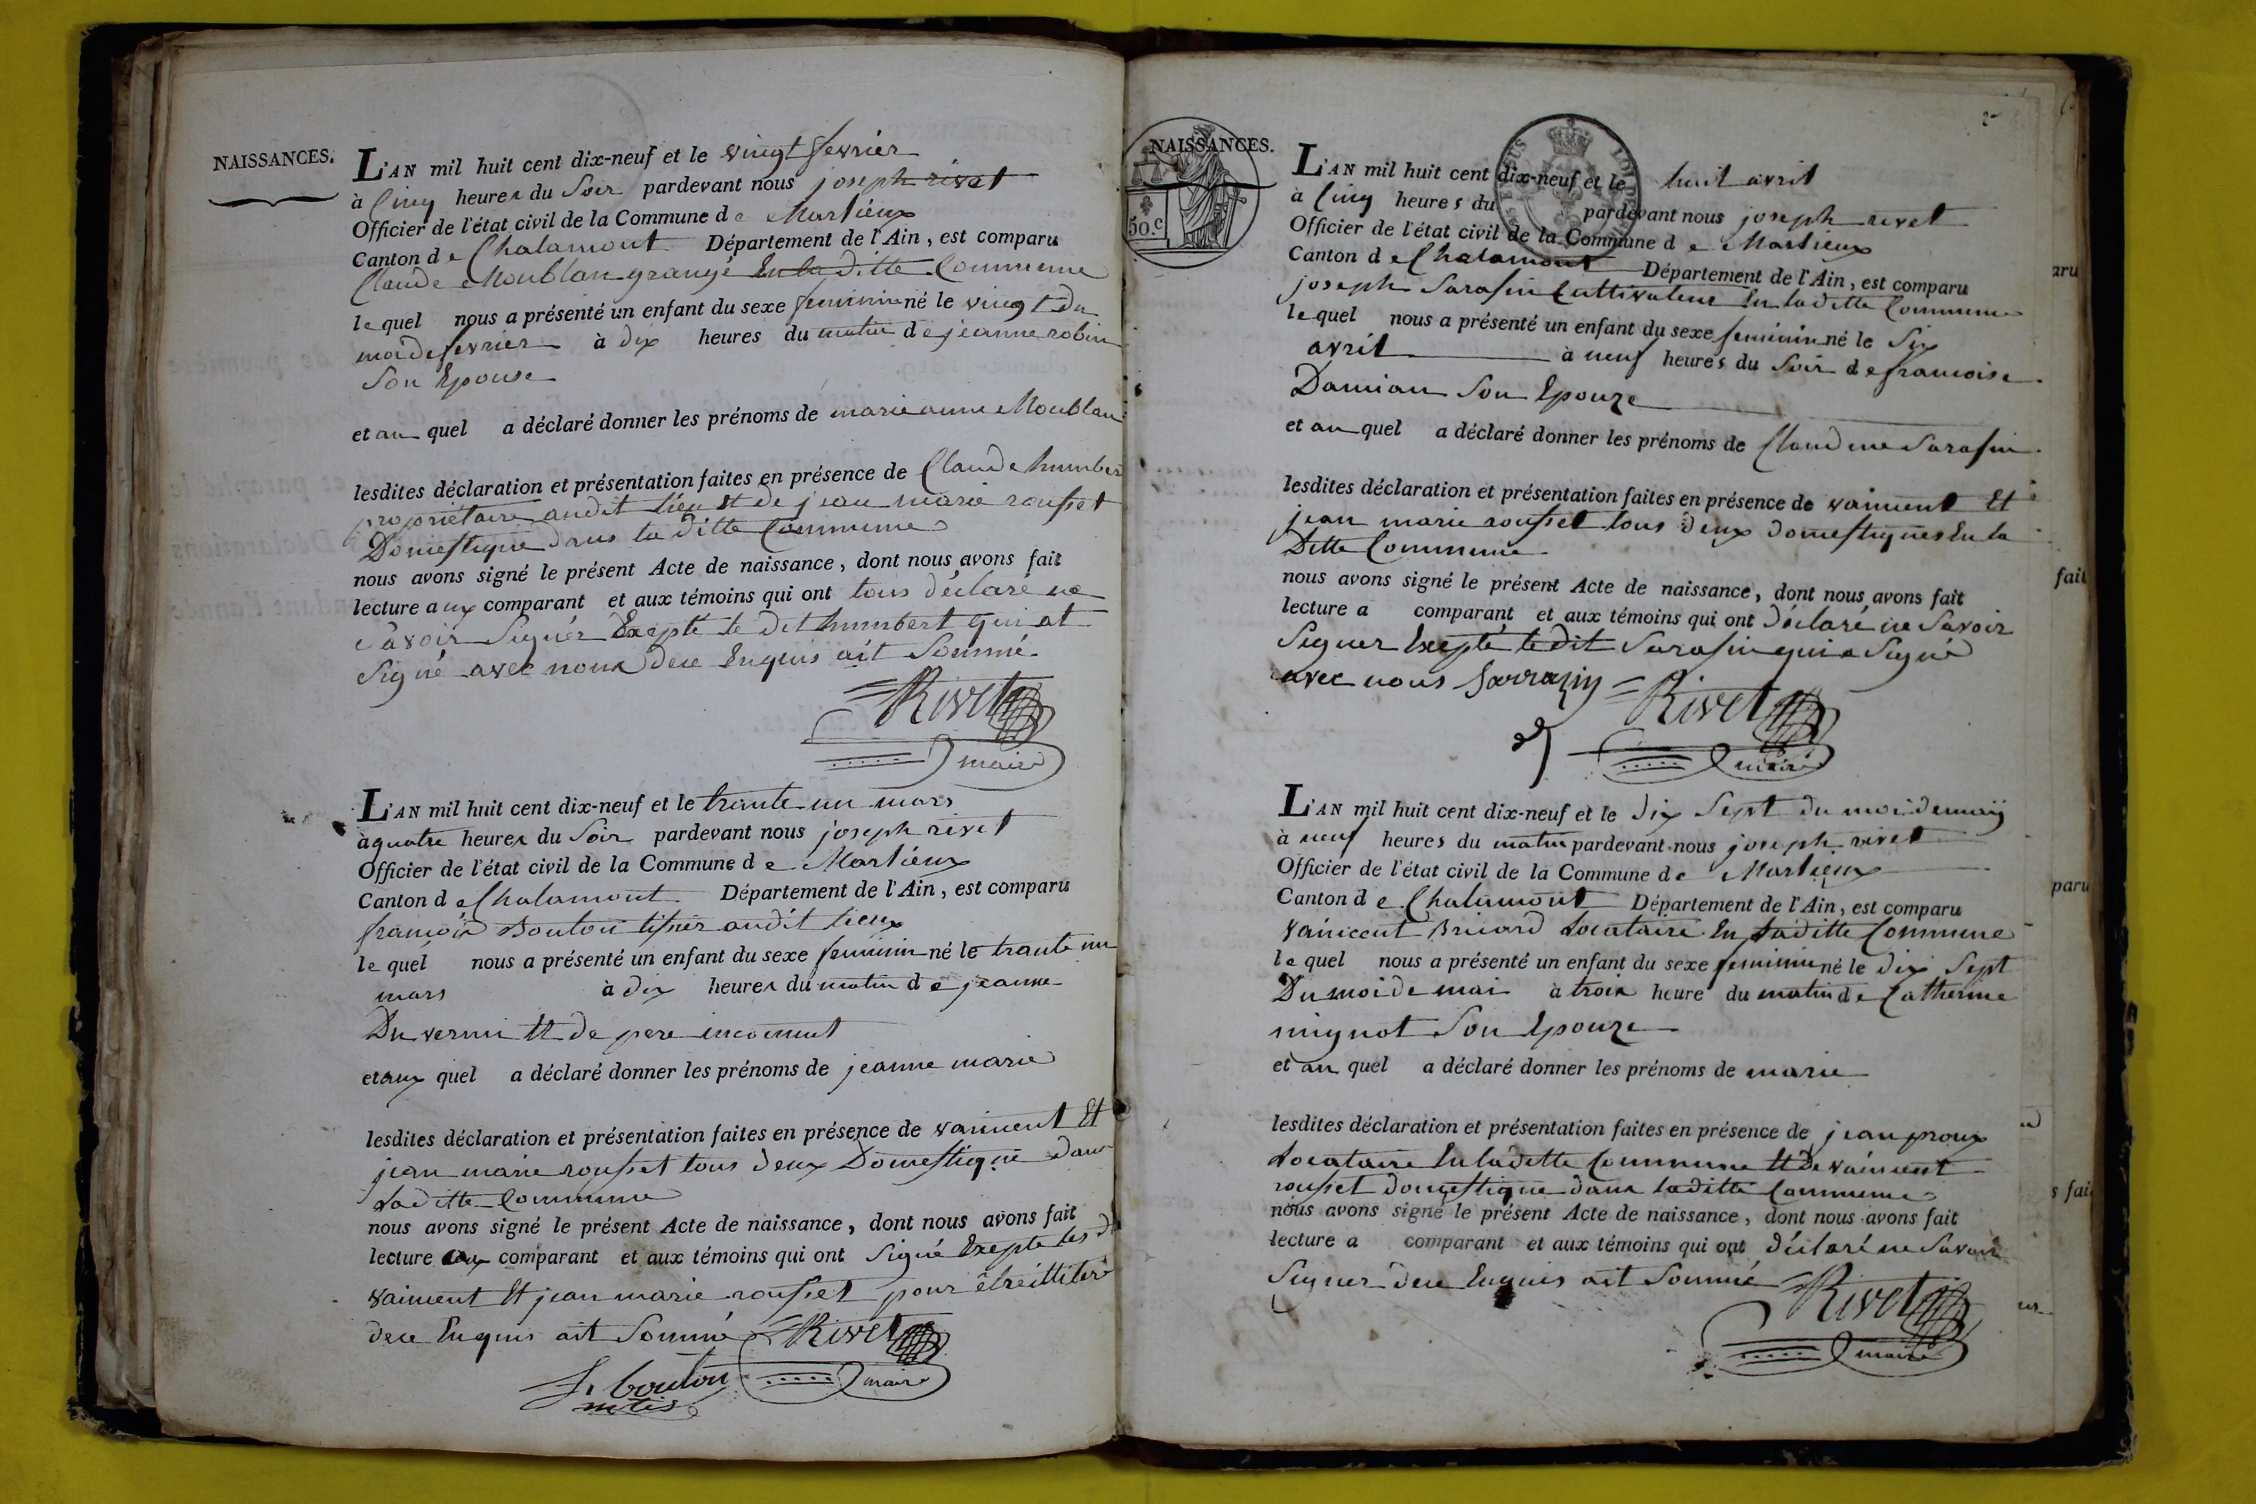 NAISSANCES.
L'AN mil huit cent dix-neuf et le vingt fevrier
à Cinq heures du Soir pardevant nous joseph rivet
Officier de l'état civil de la Commune de Marlieux
Canton de Chalamont Département de l'Ain, est comparu
Claude Moublan grangé En la ditte Commune
lequel nous a présenté un enfant du sexe feminin né le vingt Du
moi de fevrier à dix heures du matin de jeanne robin
Son Epouse
et au quel a déclaré donner les prénoms de marie anne Moublan
lesdites déclaration et présentation faites en présence de Claude humber
propriétaire audit lieu Et de jean marie rousset
Domestique dans la ditte Commune
nous avons signé le présent Acte de naissance, dont nous avons fait
lecture aux comparant et aux témoins qui ont tous déclaré ne
Savoir Signér Exepté le dit humbert qui at
Signé avec nous dece Enquis ait Sommé
Rivet
maire
L'AN mil huit cent dix-neuf et le trante un mars
à quatre heures du Soir pardevant nous joseph rivet
Officier de l'état civil de la Commune de Marlieux
Canton de Chalamont Département de l'Ain, est comparu
francois Bouton tisier audit lieux
lequel nous a présenté un enfant du sexe feminin né le trante un
mars à dix heures du matin de jeanne
Du vernu Et de pere inconnut
et aux quel a déclaré donner les prénoms de jeanne marie
lesdites déclaration et présentation faites en présence de vaincent Et
jean marie rousset tous deux Domestique dans
laditte Commune
nous avons signé le présent Acte de naissance, dont nous avons fait
lecture aux comparant et aux témoins qui ont Signé Exepte les d
vaincent Et jean marie rousset pour être illiteré
dece Enquis ait Sommé Rivet
maire
f. bouton
NAISSANCES.
50.C
L'AN mil huit cent dix-neuf et le huit avril
à Cinq heures du pardevant nous joseph rivet
Officier de l'état civil de la Commune de Marlieux
Canton de Chalamont Département de l'Ain, est comparu
joseph Sarasin Cultivateur En laditte Commune
lequel nous a présenté un enfant du sexe feminin né le Six
avril à neuf heures du Soir de francoise
Damian Son Epouze
et au quel a déclaré donner les prénoms de Claudine Sarasin
lesdites déclaration et présentation faites en présence de vaincent Et
jean marie rousset tous deux domestiques En la
Ditte Commune
nous avons signé le présent Acte de naissance, dont nous avons fait
lecture a comparant et aux témoins qui ont déclaré ne Savoir
Signer Exepté ledit Sarasin qui a Signé
avec nous Sarrazin Rivet
maire
L'AN mil huit cent dix-neuf et le dix Sept du moi de may
à neuf heures du matin pardevant nous joseph rivet
Officier de l'état civil de la Commune de Marlieux
Canton de Chalamont Département de l'Ain, est comparu
vaincent Bricard Locataire En Laditte Commune
lequel nous a présenté un enfant du sexe feminin né le dix Sept
Du moi de mai à trois heure du matin de Catherine
mignot Son Epouze
et au quel a déclaré donner les prénoms de marie
lesdites déclaration et présentation faites en présence de jean proux
Locataire En ladette Commune Et De vaincent
rousset domestique dans laditte Commune
nous avons signé le présent Acte de naissance, dont nous avons fait
lecture a comparant et aux témoins qui ont déclaré ne Savoir
Signer dece Enquis ait Sommé Rivet
maire
aru
fait
paru
s fait